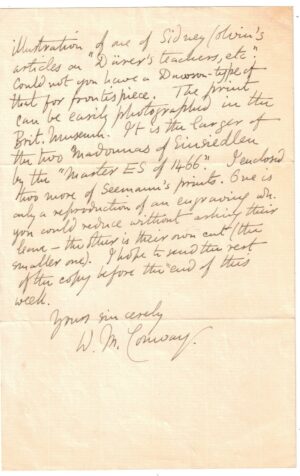 illustration of one of Sidney Colvin's
articles on "Dürer's teachers, etc".
Could not you have a Dawson-type of
that for frontispiece. The print
can be easily photographed in the
Brit. Museum. It is the larger of
the two Madonnas of Einsiedlen
by the "Master ES of 1466". I enclosed
two more of Seemann's prints. One is
only a reproduction of an engraving wh.
you could reduce without asking their
leave – the other is their own cut (the
smaller one). I hope to send the rest
of the copy before the end of this
week.
Yours sincerely
W. M. Conway.